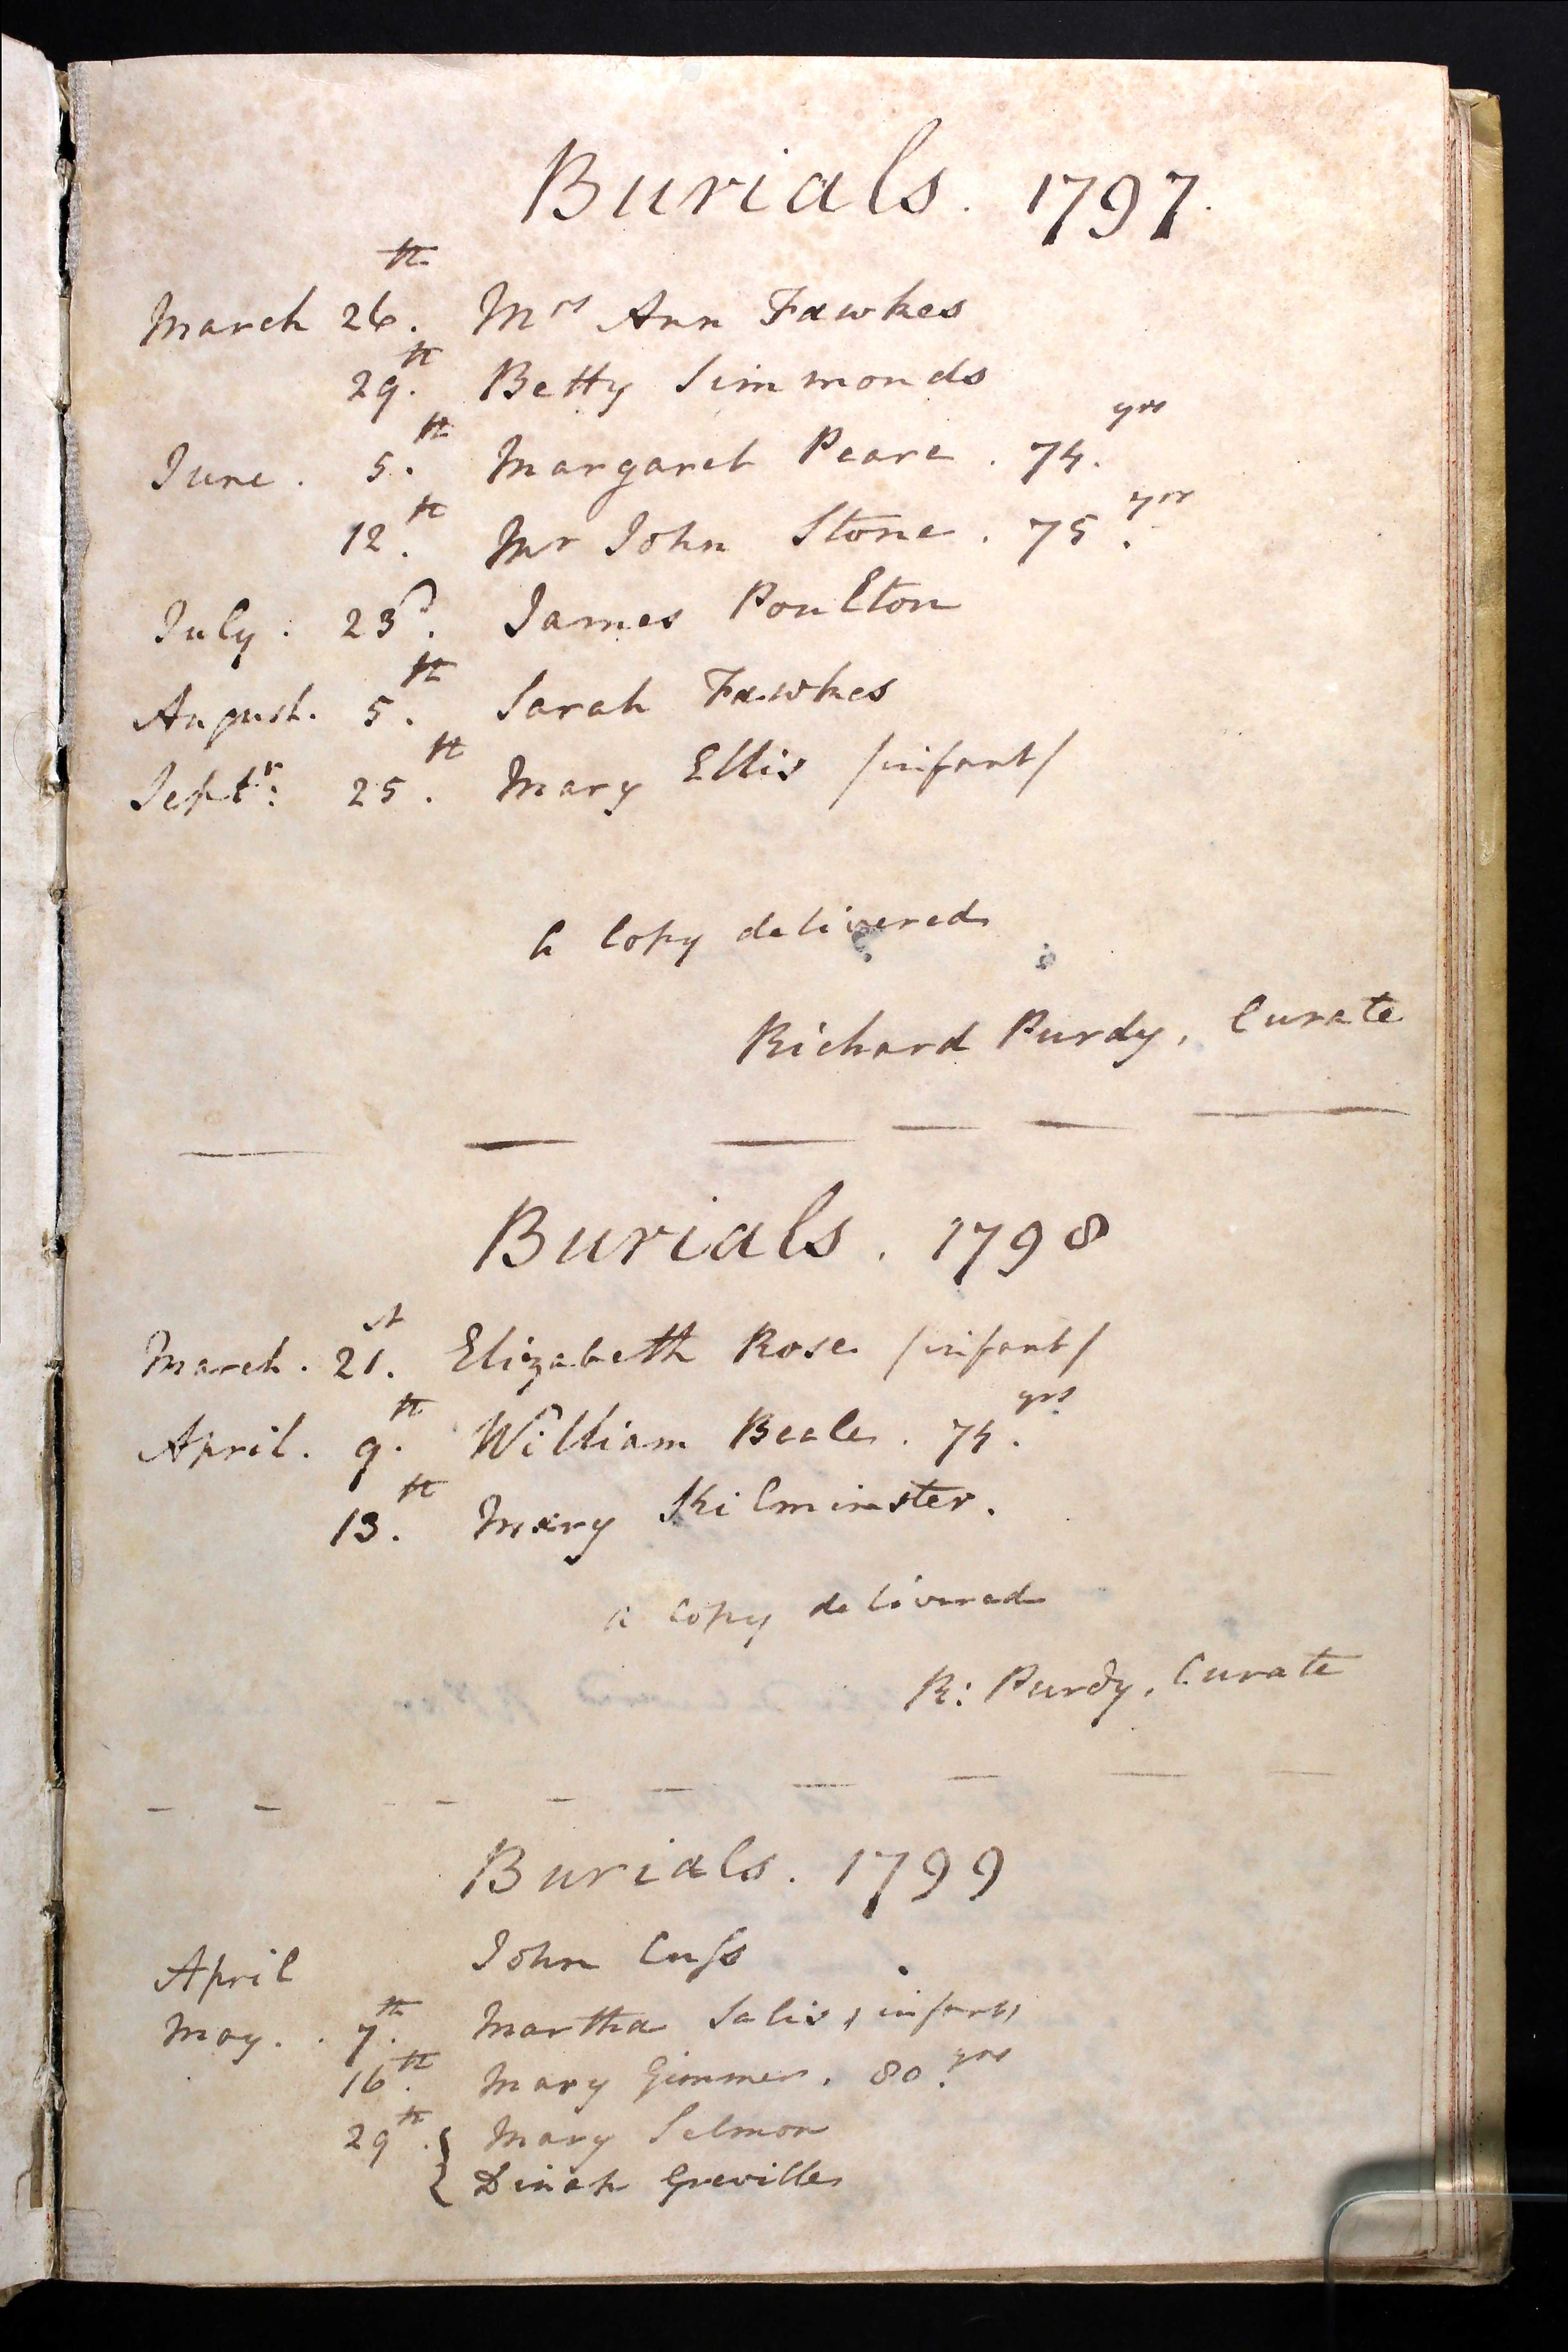 Burials. 1797.
March 26.th Mrs Ann Fawkes
29.th Betty Simmonds
June. 5.th Margaret Peare. 74.yrs
12.th Mr John Stone. 75.yrs
July. 23d. James Poulton
August. 5.th Sarah Fawkes
Septr: 25.th Mary Ellis /infant/
a Copy delivered
Richard Purdy, Curate
Burials. 1798
March. 21.st Elizabeth Rose /infant/
April. 9.th William Beale. 74.yrs
13.th Mary Kilminster.
a Copy delivered
R: Purdy, Curate
Burials. 1799
April John Cuſs
May. 7.th Martha Salis, infant,
16.th Mary Gimmer. 80.yrs
29.th { Mary Selmon
Dinah Greville